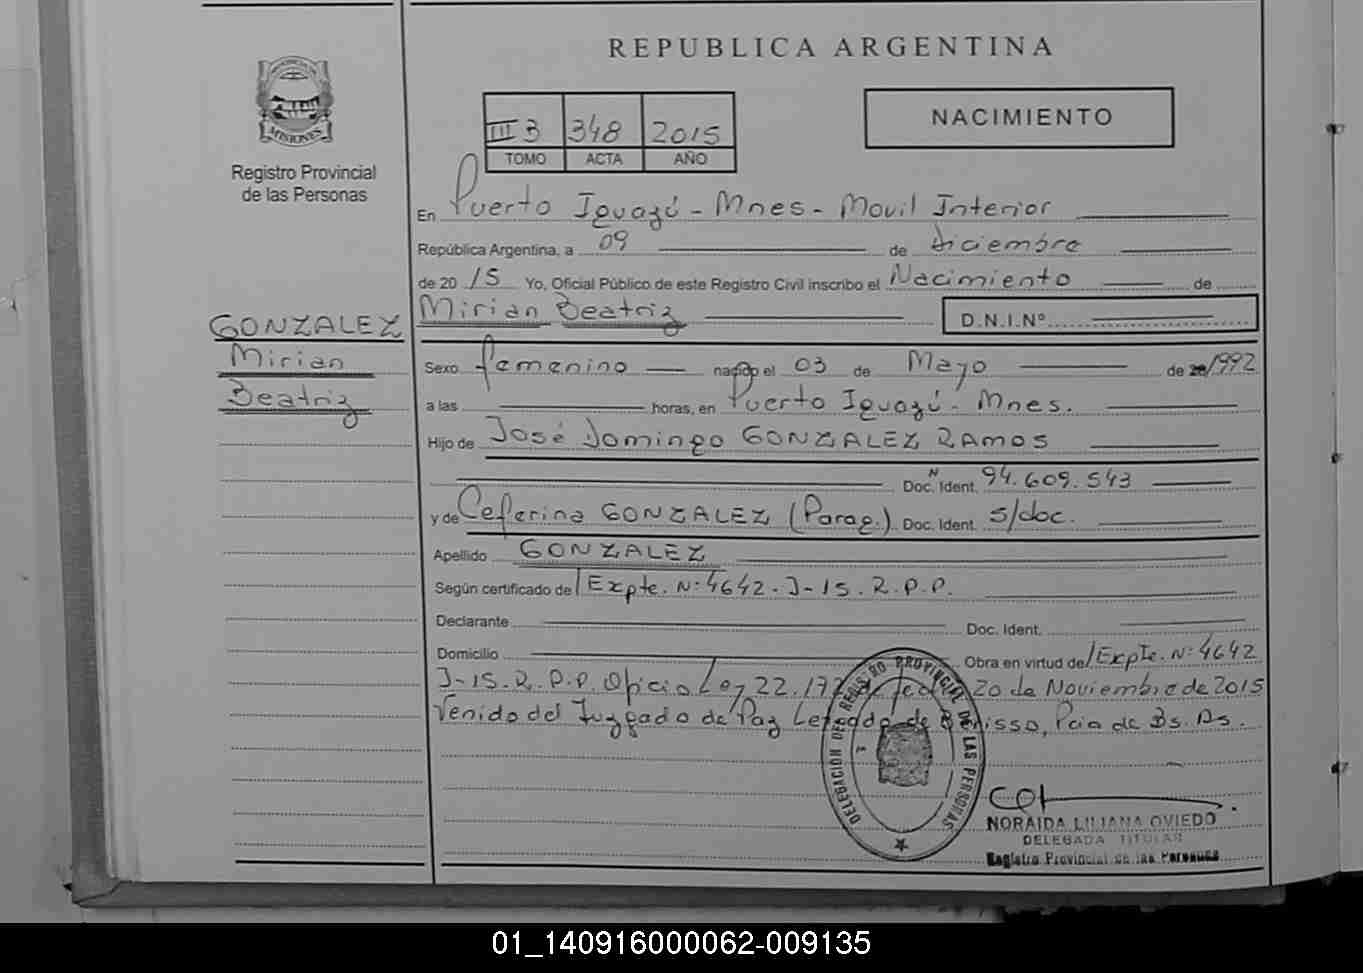 REPUBLICA ARGENTINA
PROVINCIA DE
MISIONES
Registro Provincial
de las Personas
III 3 348 2015
TOMO ACTA AÑO
NACIMIENTO
En Puerto Iguazú - Mnes - Movil Interior
República Argentina, a 09 de diciembre
de 20 15 Yo, Oficial Público de este Registro Civil inscribo el Nacimiento de
Mirian Beatriz D.N.I.Nº
GONZALEZ
Mirian
Beatriz
Sexo femenino nacido el 03 de Mayo de 1992
a las horas, en Puerto Iguazú - Mnes.
Hijo de José Domingo GONZALEZ RAMOS
Doc. Ident. N 94.609.543
y de Ceferina GONZALEZ (Parag.) Doc. Ident. s/doc.
Apellido GONZALEZ
Según certificado de Expte. Nº 4642-J-15. R.P.P.
Declarante Doc. Ident.
Domicilio Obra en virtud de Expte. Nº 4642
J-15. R.P.P. Oficio Ley 22.172 de fecha 20 de Noviembre de 2015
Venido del Juzgado de Paz Letrado de Berisso, Pcia de Bs. As.
DELEGACION DEL REGISTRO PROVINCIAL DE LAS PERSONAS
NORAIDA LILIANA OVIEDO
DELEGADA TITULAR
Registro Provincial de las Personas
01_140916000062-009135